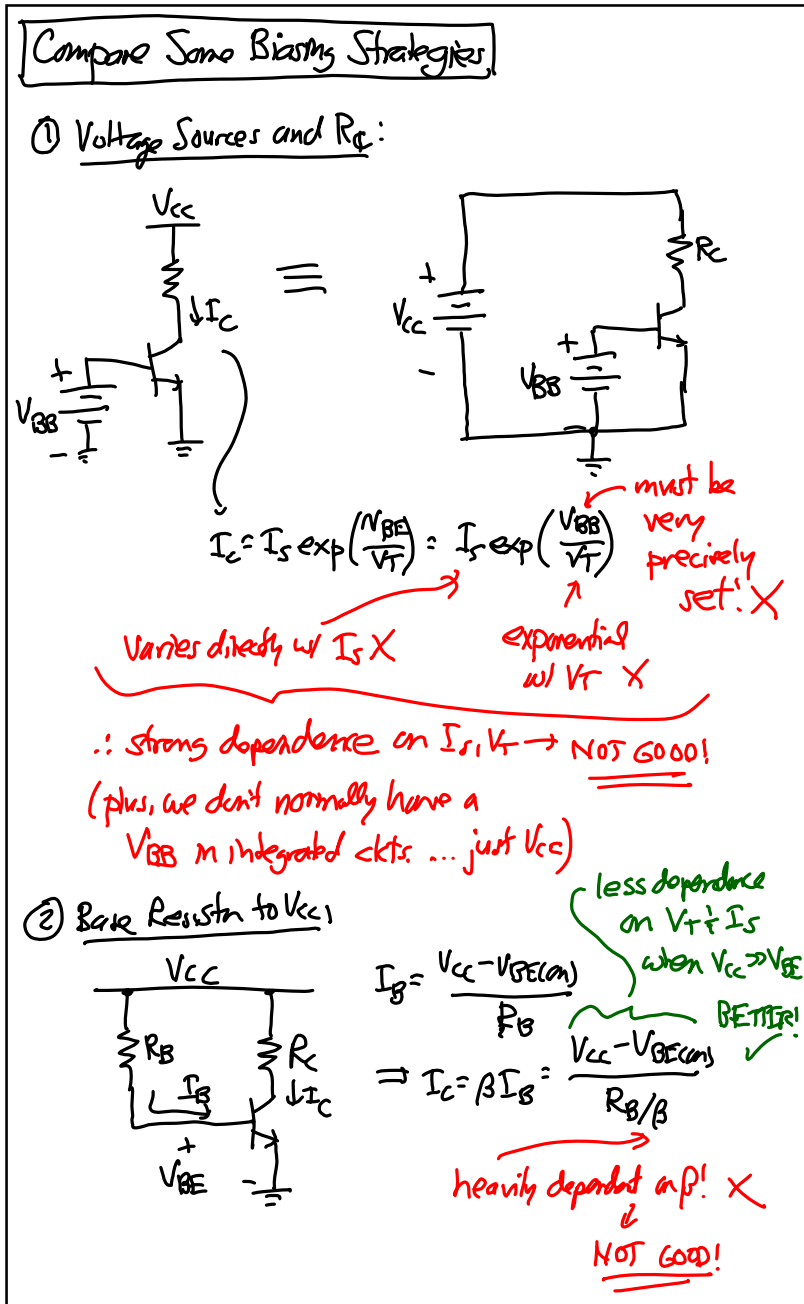 Compare Some Biasing Strategies
① Voltage Sources and R_C:
V_CC
↓I_C
+
V_BB
-
≡
+
V_CC
-
R_C
+
V_BB
-
I_C = I_S exp(V_BE/V_T) = I_S exp(V_BB/V_T)
must be
very
precisely
set! X
Varies directly w/ I_S X
exponential
w/ V_T X
∴ strong dependence on I_S, V_T → NOT GOOD!
(plus, we don't normally have a
V_BB in integrated ckts. ... just V_CC)
② Base Resistor to V_CC:
V_CC
R_B
R_C
I_B
↓I_C
+
V_BE
-
I_B = (V_CC - V_BE(on))/R_B
⇒ I_C = βI_B = (V_CC - V_BE(on))/(R_B/β)
less dependence
on V_T & I_S
when V_CC >> V_BE
BETTER! ✓
heavily dependent on β! X
↓
NOT GOOD!